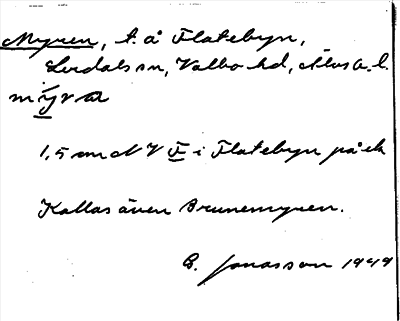 Myren, t. å Flatebyn,
Lerdals sn, Valbo hd, Älvsb. l.
mýra
1,5 cm NV F i Flatebyn på ek
Kallas även Brunemyren.
B. Jonasson 1949